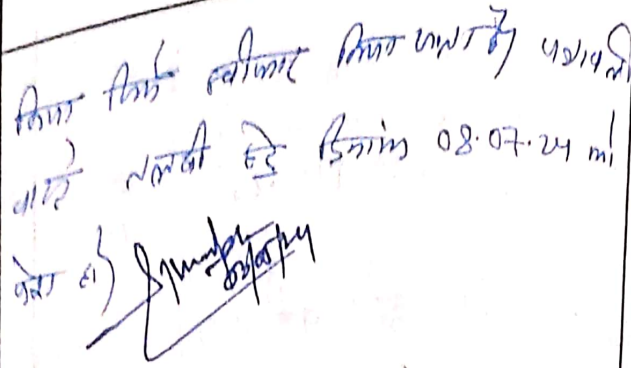 किया जिसे स्वीकार किया जाता है। पत्रावली
वास्ते तलबी हेतु दिनांक 08.07.24 को
पेश हो।